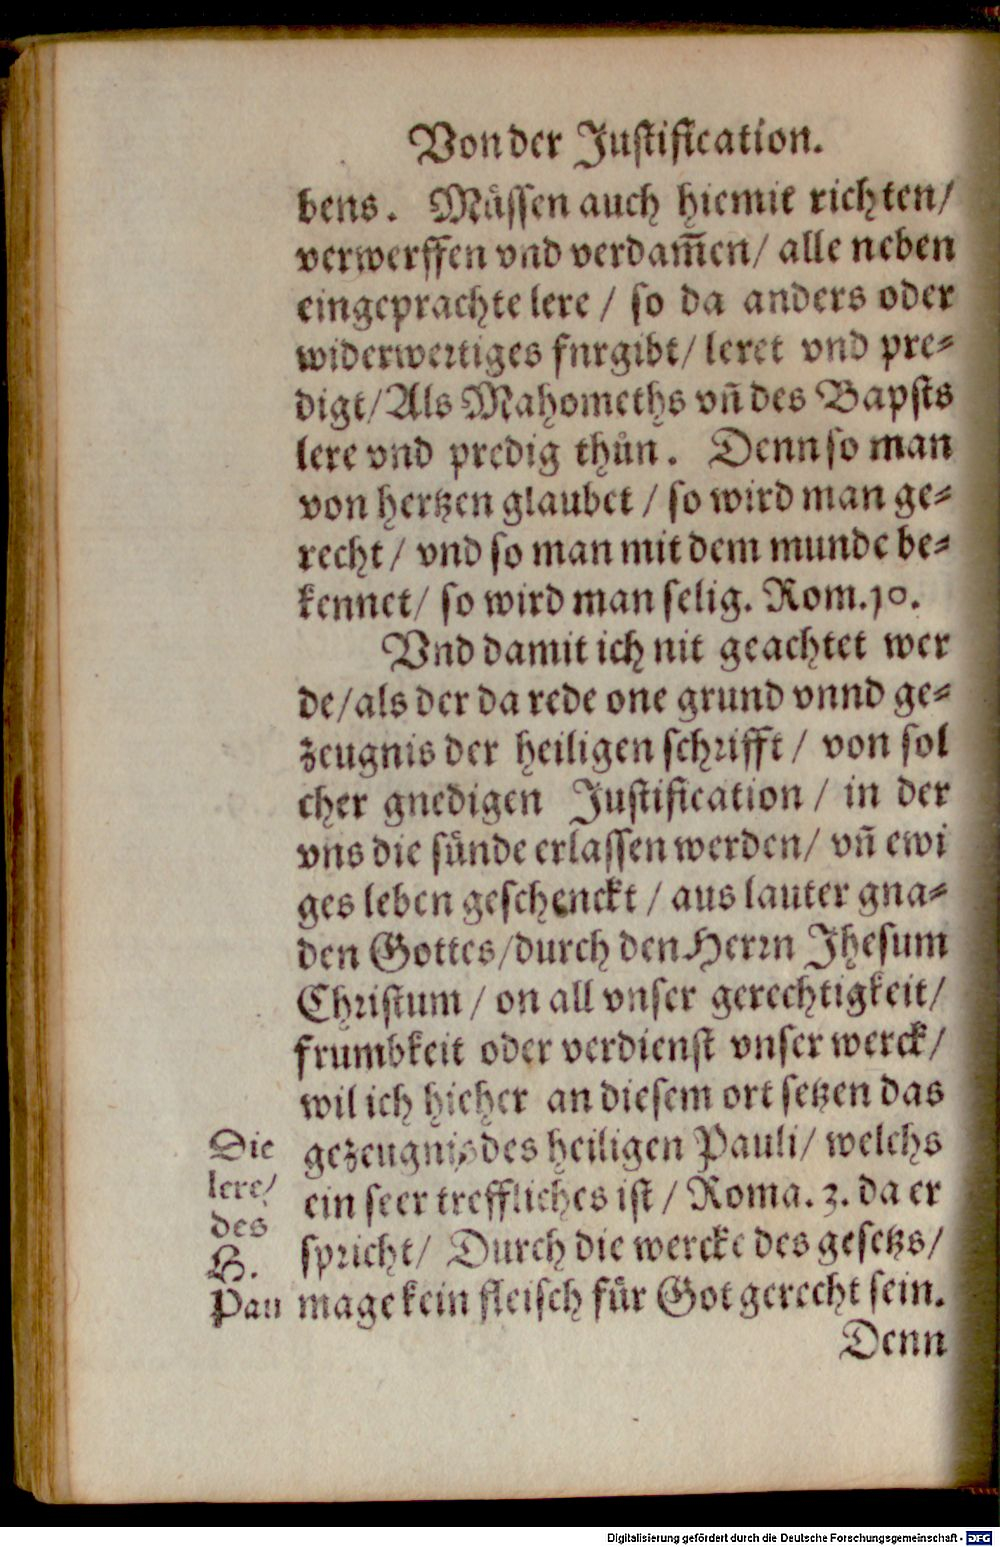 Von der Justification.
bens. Müssen auch hiemit richten/
verwerffen vnd verdam̃en/ alle neben
eingeprachte lere / so da anders oder
widerwertiges fnrgibt/ leret vnd pre⸗
digt/ Als Mahomeths vñ des Bapsts
lere vnd predig thůn. Denn so man
von hertzen glaubet / so wird man ge⸗
recht/ vnd so man mit dem munde be⸗
kennet/ so wird man selig. Rom.10.
Vnd damit ich nit geachtet wer
de/als der da rede one grund vnnd ge⸗
zeugnis der heiligen schrifft / von sol
cher gnedigen Justification / in der
vns die sünde erlassen werden/ vñ ewi
ges leben geschenckt / aus lauter gna⸗
den Gottes/durch den Herrn Jhesum
Christum / on all vnser gerechtigkeit/
frumbkeit oder verdienst vnser werck/
wil ich hieher an diesem ort setzen das
gezeugnis des heiligen Pauli/ welchs
ein seer treffliches ist / Roma. 3. da er
spricht/ Durch die wercke des gesetzs/
mage kein fleisch für Got gerecht sein.
Die
lere/
des
H.
Pau
Denn
Digitalisierung gefördert durch die Deutsche Forschungsgemeinschaft - DFG